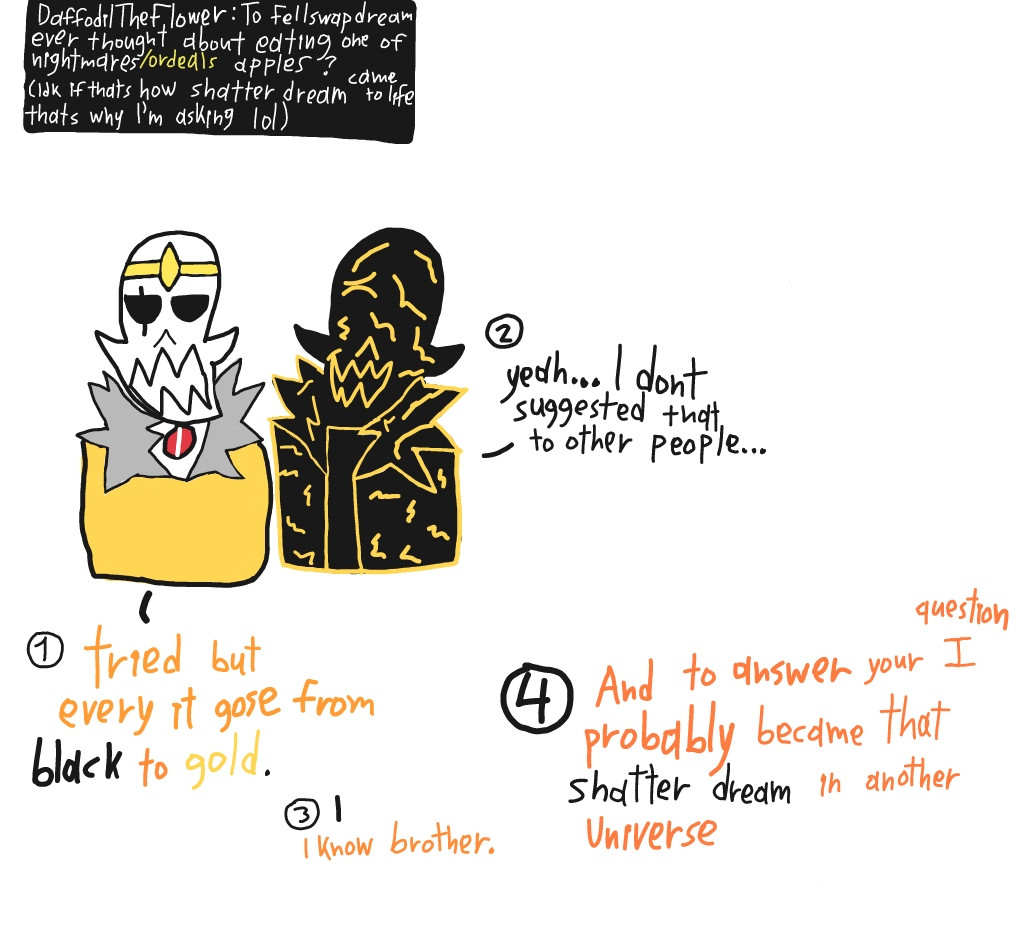 DaffodilTheFlower: To fellswapdream
ever thought about eating one of
nightmares/ordeals apples?
(idk if thats how shatter dream came to life
thats why I'm asking lol)
① tried but
every it gose from
black to gold.
② yeah... I dont
suggested that
to other people...
③ I know brother.
④ And to answer your question I
probably became that
shatter dream in another
Universe